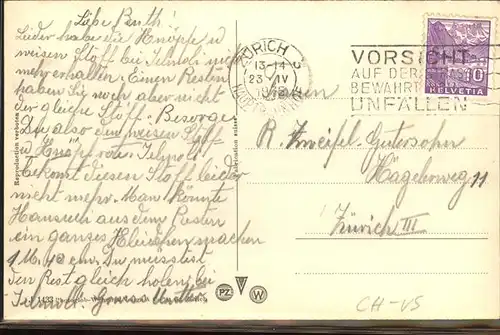 Liebe Berth!
Leider habe die Knöpfe u
weisen Stoff bei Jelmoli nicht
mehr erhalten. Einen Resten
haben Sie noch aber nicht
der gleiche Stoff. Besorge
Du also den weisen Stoff
u Knöpf rote. Jelmoli
bekomt diesen Stoff leider
nicht mehr. Man könnte
Hansruh aus dem Resten
ein ganzes Kleidchen machen
1 M. 40 cm. Du müsstest
den Rest gleich holen bei
Jelmoli. Gruss Mutter
Reproduction verboten
ZÜRICH
13-14
23 IV
VORSICHT
AUF DER
BEWAHRT
UNFÄLLEN
10
HELVETIA
R. Zweifel-Gutersohn
Hägelerweg 11
Zürich III
PZ
W
CH-VS